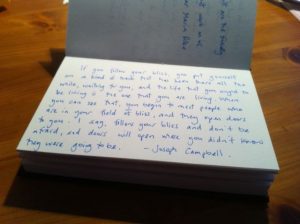 If you follow your bliss, you put yourself
on a kind of track that has been there all the
while, waiting for you, and the life that you ought to
be living is the one that you are living. When
you can see that, you begin to meet people who
are in your field of bliss, and they open doors
to you. I say, follow your bliss and don't be
afraid, and doors will open where you didn't know
they were going to be. - Joseph Campbell